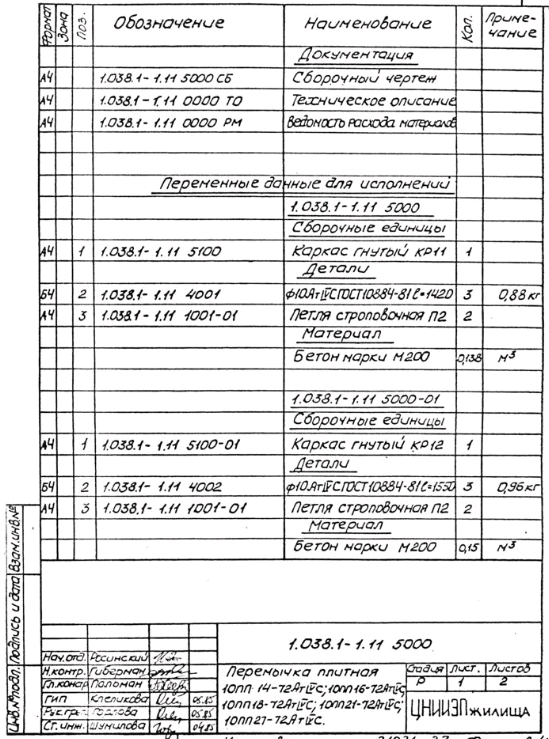 Формат Зона Поз. Обозначение Наименование Кол. Приме-чание
Документация
А4 1.038.1-1.11 5000 СБ Сборочный чертеж
А4 1.038.1-1.11 0000 ТО Техническое описание
А4 1.038.1-1.11 0000 РМ Ведомость расхода материалов
Переменные данные для исполнений
1.038.1-1.11 5000
Сборочные единицы
А4 1 1.038.1-1.11 5100 Каркас гнутый КР11 1
Детали
Б4 2 1.038.1-1.11 4001 ф10АтⅣС ГОСТ 10884-81 ℓ=1420 3 0,88кг
А4 3 1.038.1-1.11 1001-01 Петля строповочная П2 2
Материал
Бетон марки М200 0,138 м³
1.038.1-1.11 5000-01
Сборочные единицы
А4 1 1.038.1-1.11 5100-01 Каркас гнутый КР12 1
Детали
Б4 2 1.038.1-1.11 4002 ф10АтⅣС ГОСТ 10884-81 ℓ=1550 3 0,96кг
А4 3 1.038.1-1.11 1001-01 Петля строповочная П2 2
Материал
Бетон марки М200 0,15 м³
Инв.№подл. Подпись и дата Взам.инв.№
1.038.1-1.11 5000
Нач.отд. Росинский
Н.контр. Губерман
Гл.констр Поломан
ГИП Клепикова 05.85
Рук.гр. 05.85
Ст.инж. Шумилова 04.85
Перемычка плитная
10ПП 14-72АтⅣС; 10ПП16-72АтⅣС
10ПП18-72АтⅣС; 10ПП21-72АтⅣС;
10ПП27-72АтⅣС.
Стадия Лист. Листов
Р 1 2
ЦНИИЭП жилища